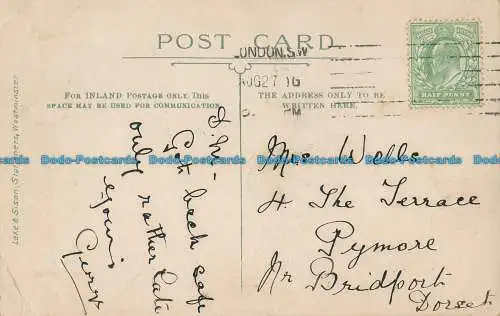 POST CARD.
LONDON.S.W
AUG 27 10
HALF PENNY
FOR INLAND POSTAGE ONLY. THIS
SPACE MAY BE USED FOR COMMUNICATION.
THE ADDRESS ONLY TO BE
WRITTEN HERE.
Lake & Sison, Stationers, Westminster
Got back safe
only rather late
Mrs Wells
4 The Terrace
Pymore
Nr Bridport
Dorset
Dodo-Postcards Dodo-Postcards Dodo-Postcards Dodo-Postcards Dodo-Postcards